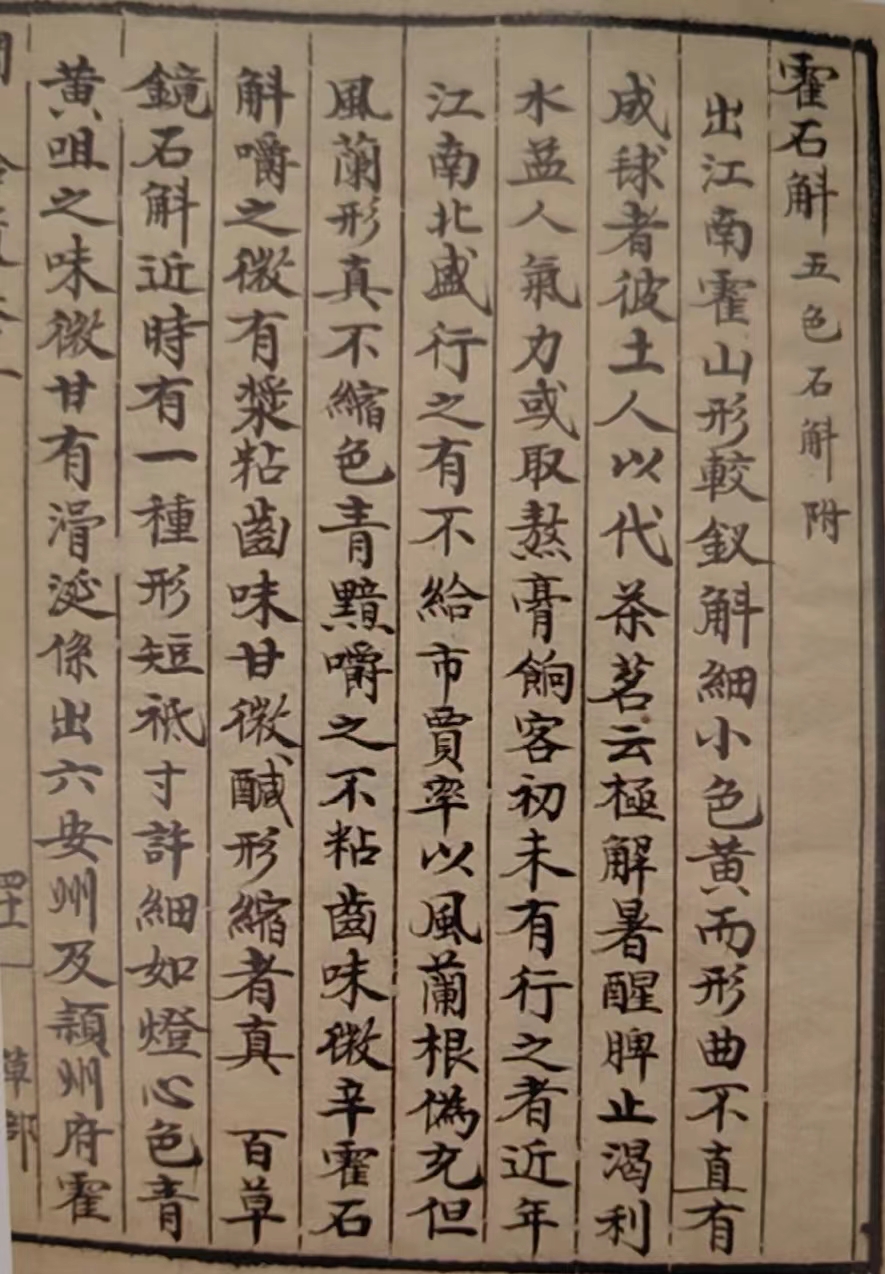 霍石斛 五色石斛附
出江南霍山形較釵斛細小色黃而形曲不直有
成球者彼土人以代茶茗云極解暑醒脾止渴利
水益人氣力或取熬膏餉客初未有行之者近年
江南北盛行之有不給市賈率以風蘭根偽充但
風蘭形真不縮色青黯嚼之不粘齒味微辛霍石
斛嚼之微有漿粘齒味甘微醎形縮者真 百草
鏡石斛近時有一種形短祇寸許細如燈心色青
黃咀之味微甘有滑涎係出六安州及潁州府霍
草部